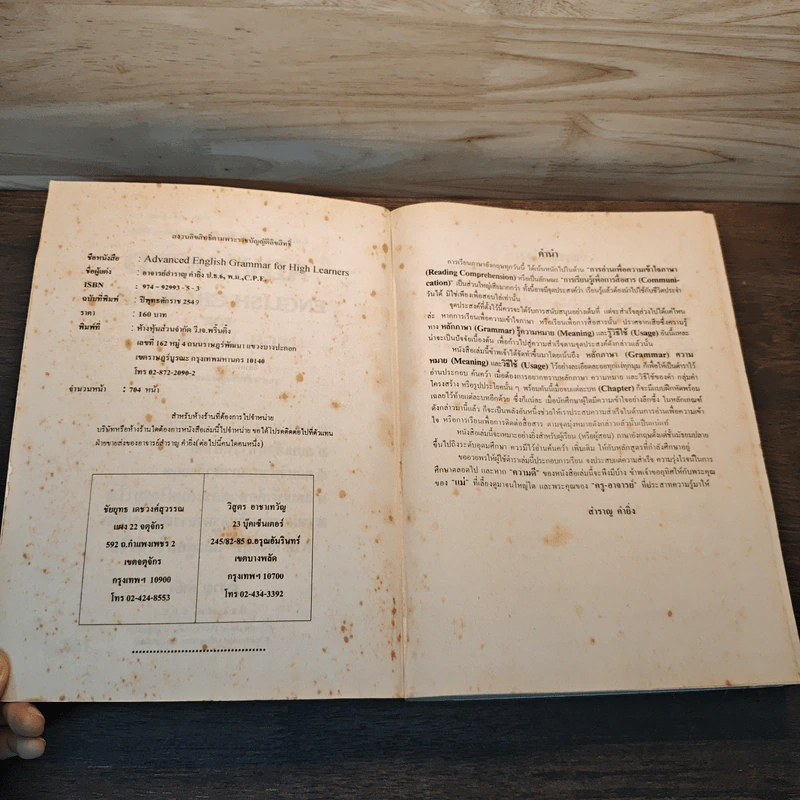 สงวนลิขสิทธิ์ตามพระราชบัญญัติลิขสิทธิ์
ชื่อหนังสือ : Advanced English Grammar for High Learners
ชื่อผู้แต่ง : อาจารย์สำราญ คำยิ่ง ป.ธ.6, พ.ม.,C.P.E.
ISBN : 974 - 92993 - 8 - 3
ฉบับที่พิมพ์ : ปีพุทธศักราช 2549
ราคา : 160 บาท
พิมพ์ที่ : ห้างหุ้นส่วนจำกัด วี.จอ.พริ้นติ้ง
เลขที่ 162 หมู่ 4 ถนนราษฎร์พัฒนา แขวงบางปะกอก
เขตราษฎร์บูรณะ กรุงเทพมหานคร 10140
โทร 02-872-2090-2
จำนวนหน้า : 704 หน้า
สำหรับห้างร้านที่ต้องการไปจำหน่าย
บริษัทหรือห้างร้านใดต้องการหนังสือเล่มนี้ไปจำหน่าย ขอได้โปรดติดต่อไปที่ตัวแทน
ฝ่ายขายส่งของอาจารย์สำราญ คำยิ่ง(ต่อไปนี้คนใดคนหนึ่ง)
ชัยยุทธ เดชวงศ์สุวรรณ
แผง 22 จตุจักร
592 ถ.กำแพงเพชร 2
เขตจตุจักร
กรุงเทพฯ 10900
โทร 02-424-8553
วิสูตร อาชาเทวัญ
23 บุ๊คเซ็นเตอร์
245/82-85 ถ.อรุณอัมรินทร์
เขตบางพลัด
กรุงเทพฯ 10700
โทร 02-434-3392
คำนำ
การเรียนภาษาอังกฤษทุกวันนี้ ได้เน้นหนักไปในด้าน "การอ่านเพื่อความเข้าใจภาษา
(Reading Comprehension) หรือเป็นลักษณะ "การเรียนรู้เพื่อการสื่อสาร (Communi-
cation)" เป็นส่วนใหญ่เสียมากกว่า ทั้งนี้อาจมีจุดประสงค์ว่า เรียนรู้แล้วต้องนำไปใช้กับชีวิตประจำ
วันได้ มิใช่เพื่อเพื่อสอบไล่เท่านั้น
จุดประสงค์ที่ตั้งไว้นี้ควรจะได้รับการสนับสนุนอย่างเต็มที่ แต่จะสำเร็จลุล่วงไปได้แค่ไหน
ล่ะ หากการเรียนเพื่อความเข้าใจภาษา หรือเรียนเพื่อการสื่อสารนั้น ปราศจากเสียซึ่งความรู้
ทาง หลักภาษา (Grammar) รู้ความหมาย (Meaning) และรู้วิธีใช้ (Usage) อันนี้แหละ
น่าจะเป็นปัจจัยเบื้องต้น เพื่อก้าวไปสู่ความสำเร็จตามจุดประสงค์ดังกล่าวแล้วนั้น
หนังสือเล่มนี้ข้าพเจ้าได้จัดทำขึ้นมาโดยเน้นถึง หลักภาษา (Grammar) ความ
หมาย (Meaning) และวิธีใช้ (Usage) ไว้อย่างละเอียดละออทุกแง่ทุกมุม ก็เพื่อให้เป็นตำราไว้
อ่านประกอบ ค้นคว้า เมื่อต้องการอยากทราบหลักภาษา ความหมาย และวิธีใช้ของคำ กลุ่มคำ
โครงสร้าง หรือรูปประโยคนั้น ๆ พร้อมกันนี้เมื่อจบแต่ละบท (Chapter) ก็จะมีแบบฝึกหัดพร้อม
เฉลยไว้ท้ายแต่ละบทอีกด้วย ซึ่งก็แน่ละ เมื่อนักศึกษาผู้ใดมีความเข้าใจอย่างลึกซึ้ง ในหลักเกณฑ์
ดังกล่าวมานี้แล้ว ก็จะเป็นพลังอันหนึ่งช่วยให้เราประสบความสำเร็จในด้านการอ่านเพื่อความเข้า
ใจ หรือการเรียนเพื่อการติดต่อสื่อสาร ตามจุดมุ่งหมายดังกล่าวแล้วนั้นเป็นแน่แท้
หนังสือเล่มนี้จะเหมาะอย่างยิ่งสำหรับผู้เรียน (หรือผู้สอน) ภาษาอังกฤษตั้งแต่ชั้นมัธยมปลาย
ขึ้นไปถึงระดับอุดมศึกษา ควรมีไว้อ่านค้นคว้า เพิ่มเติม ให้กับหลักสูตรที่กำลังศึกษาอยู่
ขออวยพรให้ผู้ใช้ตำราเล่มนี้ประกอบการเรียน จงประสบแต่ความสำเร็จ ความรุ่งโรจน์ในการ
ศึกษาตลอดไป และหาก "ความดี" ของหนังสือเล่มนี้จะพึงมีบ้าง ข้าพเจ้าขออุทิศให้กับพระคุณ
ของ "แม่" ที่เลี้ยงดูมาจนใหญ่โต และพระคุณของ "ครู-อาจารย์" ที่ประสาทความรู้มาให้
สำราญ คำยิ่ง